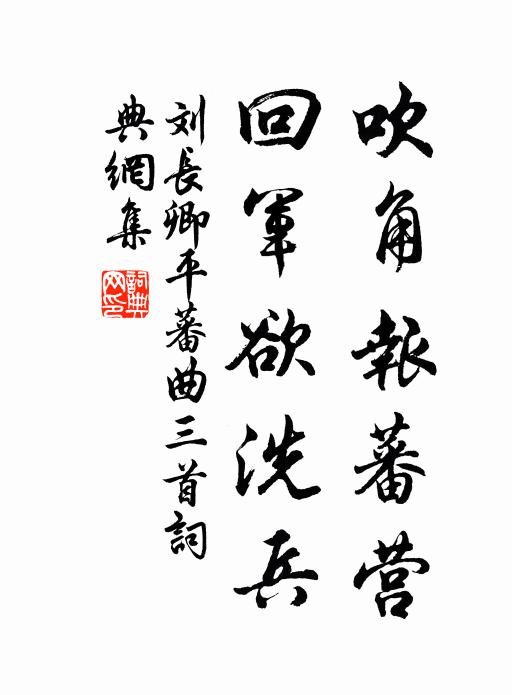 吹角報蕃营
回軍欲洗兵
刘長卿平蕃曲三首詞
典網集
詞典
网印